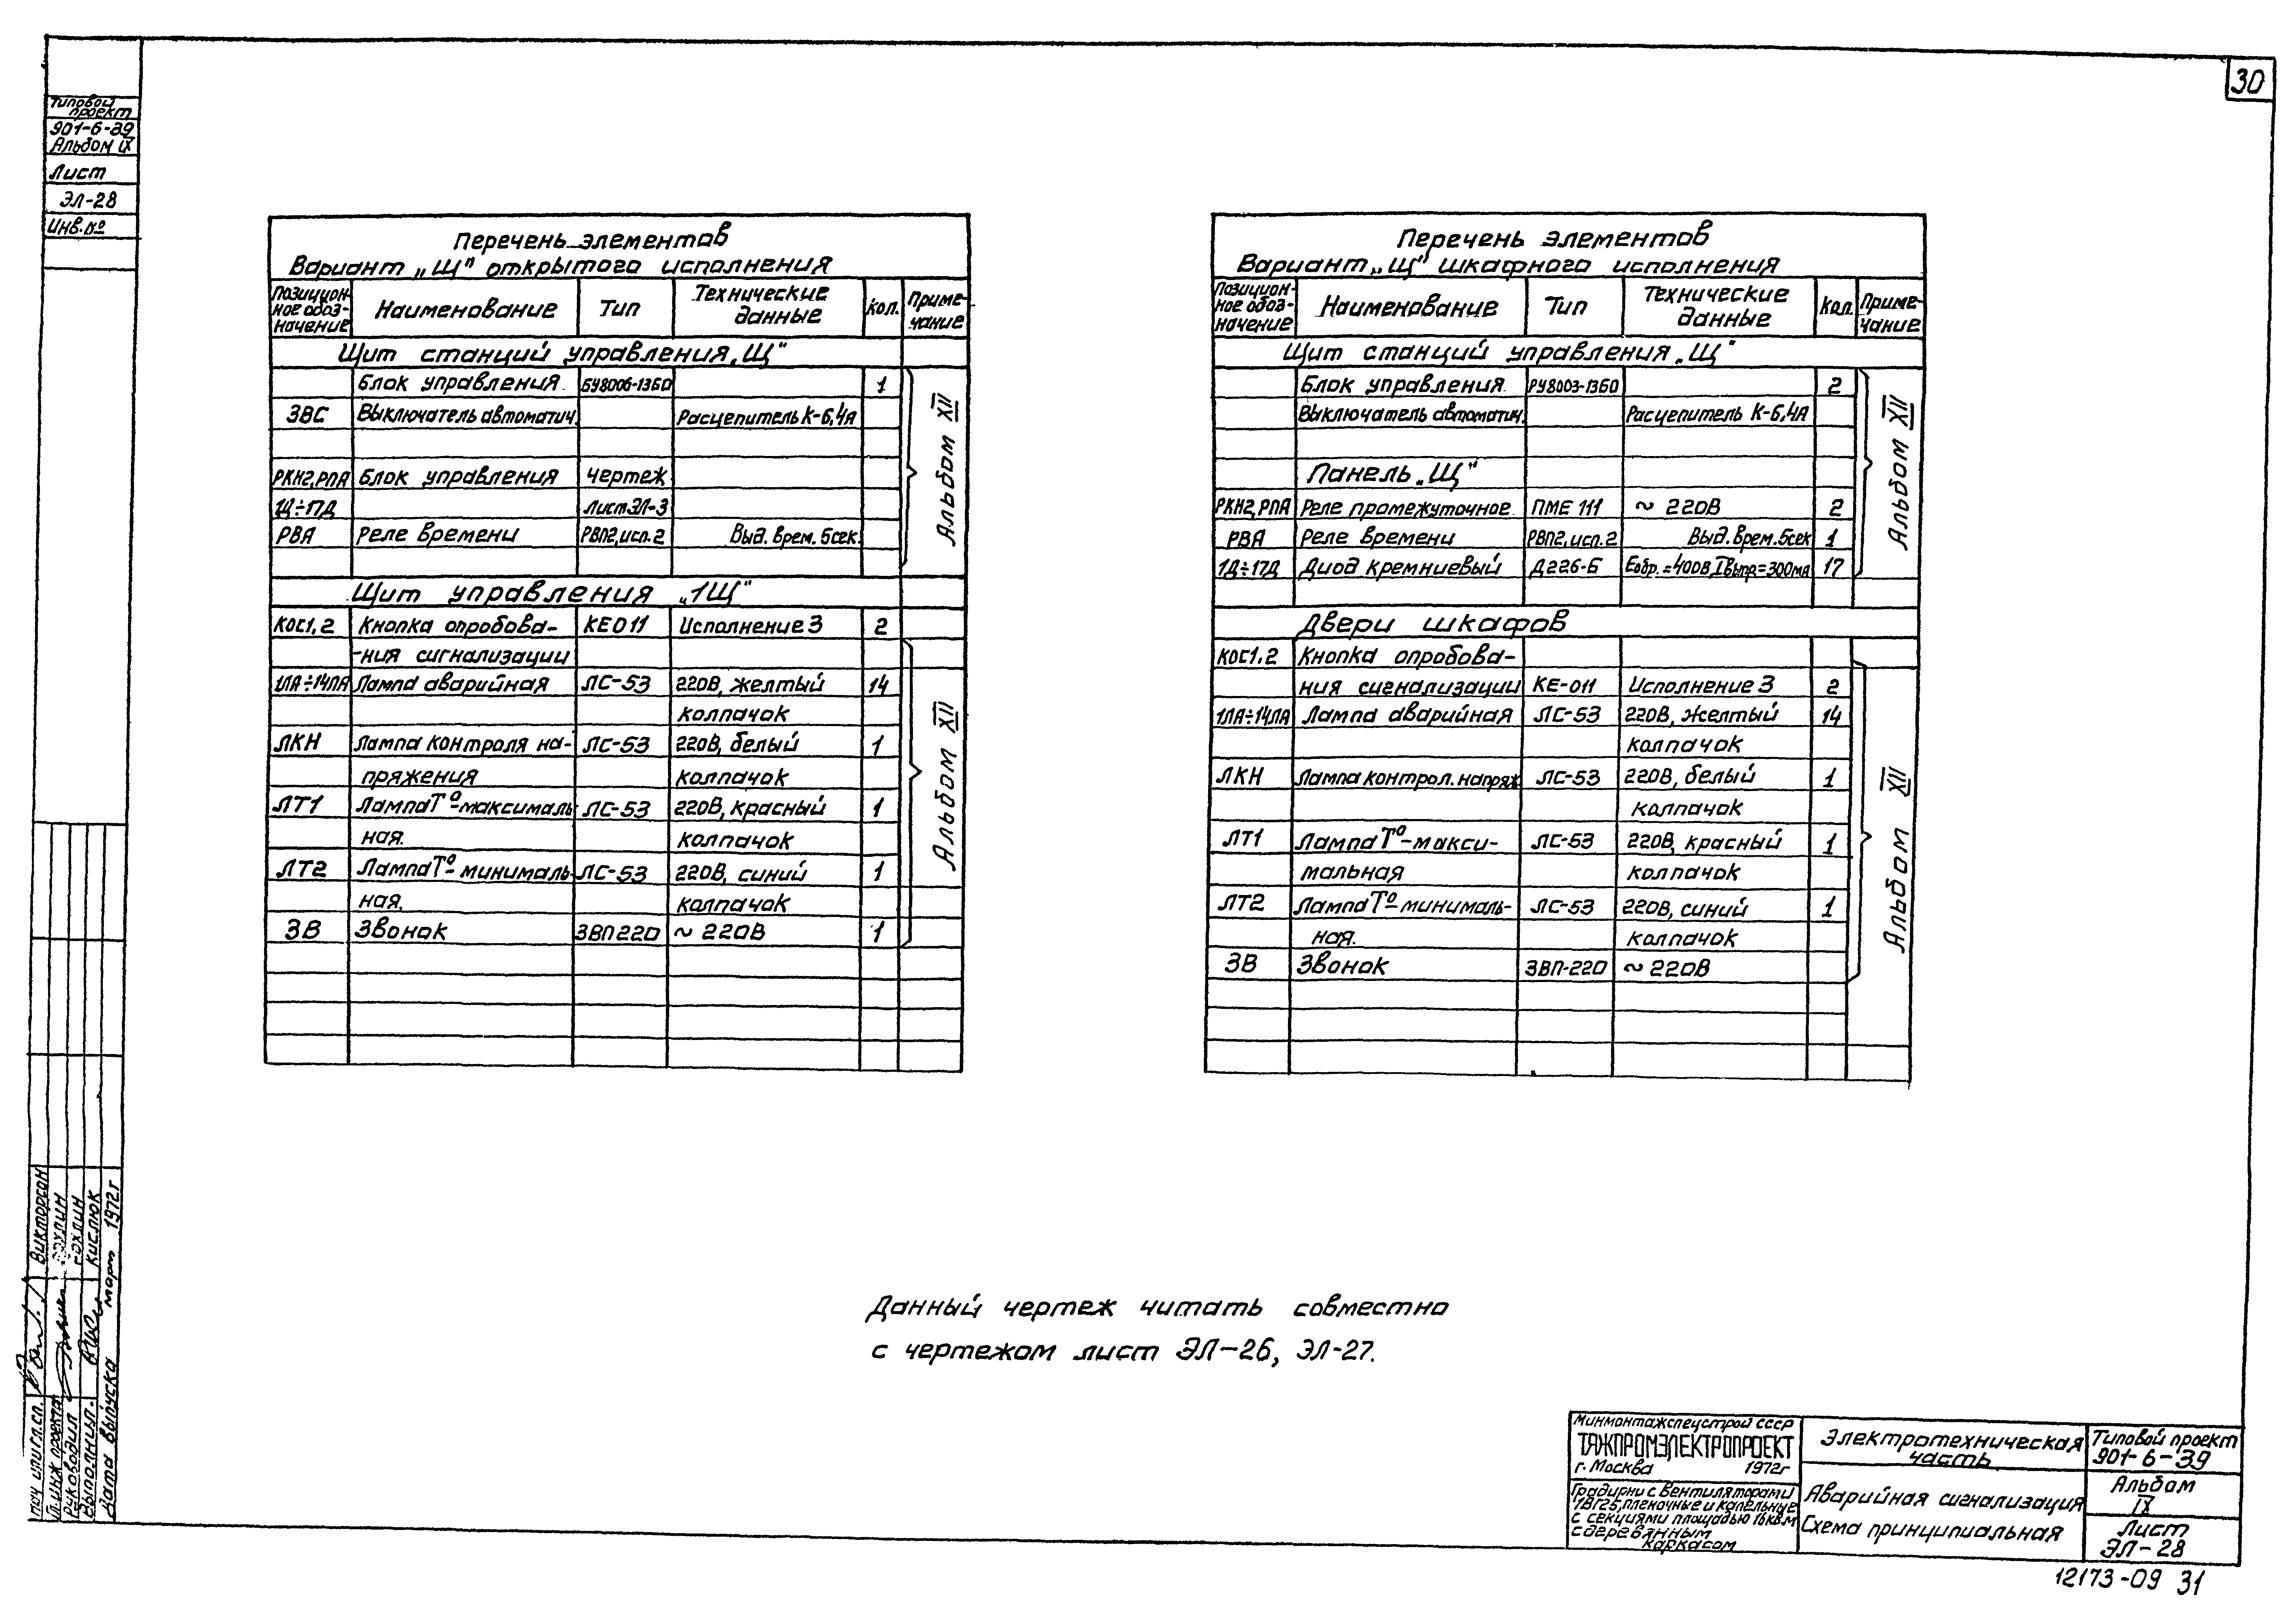 30
Типовой
проект
901-6-39
Альбом IX
Лист
ЭЛ-28
Инв.№
Перечень элементов
Вариант „Щ" открытого исполнения
Позицион-
ное обоз-
начение
Наименование
Тип
Технические
данные
Кол.
Приме-
чание
Щит станций управления „Щ"
Блок управления БУ8006-13Б0 1
3ВС Выключатель автоматич. Расцепитель К-6,4А
РКН2,РПА Блок управления чертеж
1Д÷17Д Лист ЭЛ-3
РВА Реле времени РВП2, исп. 2 Выд. врем. 5сек.
Альбом XII
Щит управления „1Щ"
КОС1,2 Кнопка опробова- КЕ011 Исполнение 3 2
-ния сигнализации
1ЛА÷14ЛА Лампа аварийная ЛС-53 220В, желтый 14
колпачок
ЛКН Лампа контроля на- ЛС-53 220В, белый 1
пряжения колпачок
ЛТ1 Лампа Т°-максималь ЛС-53 220В, красный 1
ная. колпачок
ЛТ2 Лампа Т°-минималь- ЛС-53 220В, синий 1
ная. колпачок
ЗВ Звонок ЗВП220 ~ 220В 1
Альбом XII
Перечень элементов
Вариант „Щ" шкафного исполнения
Позицион-
ное обоз-
начение
Наименование
Тип
Технические
данные
Кол.
Приме-
чание
Щит станций управления „Щ"
Блок управления РУ8003-13Б0 2
Выключатель автоматич. Расцепитель К-6,4А
Панель „Щ"
РКН2,РПА Реле промежуточное ПМЕ 111 ~ 220В 2
РВА Реле времени РВП2, исп. 2 Выд. врем. 5сек 1
1Д÷17Д Диод кремниевый Д226-Б Еобр.=400В, Iвыпр=300мА 17
Альбом XII
Двери шкафов
КОС1.2 Кнопка опробова-
ния сигнализации КЕ-011 Исполнение 3 2
1ЛА÷14ЛА Лампа аварийная ЛС-53 220В, желтый 14
колпачок
ЛКН Лампа контрол. напряж. ЛС-53 220В, белый 1
колпачок
ЛТ1 Лампа Т°-макси- ЛС-53 220В, красный 1
мальная колпачок
ЛТ2 Лампа Т°-минималь- ЛС-53 220В, синий 1
ная. колпачок
ЗВ Звонок ЗВП-220 ~ 220В
Альбом XII
Данный чертеж читать совместно
с чертежом лист ЭЛ-26, ЭЛ-27.
Викторсон
Гохлин
Кислюк
Руководил
Выполнил.
Дата выпуска март 1972г
Минмонтажспецстрой СССР
ТЯЖПРОМЭЛЕКТРОПРОЕКТ
г. Москва 1972г
Градирни с вентиляторами
1ВГ25, пленочные и капельные
с секциями площадью 16кв.м
с деревянным
каркасом
Электротехническая
часть
Аварийная сигнализация
Схема принципиальная
Типовой проект
901-6-39
Альбом
IX
Лист
ЭЛ-28
12173-09 31